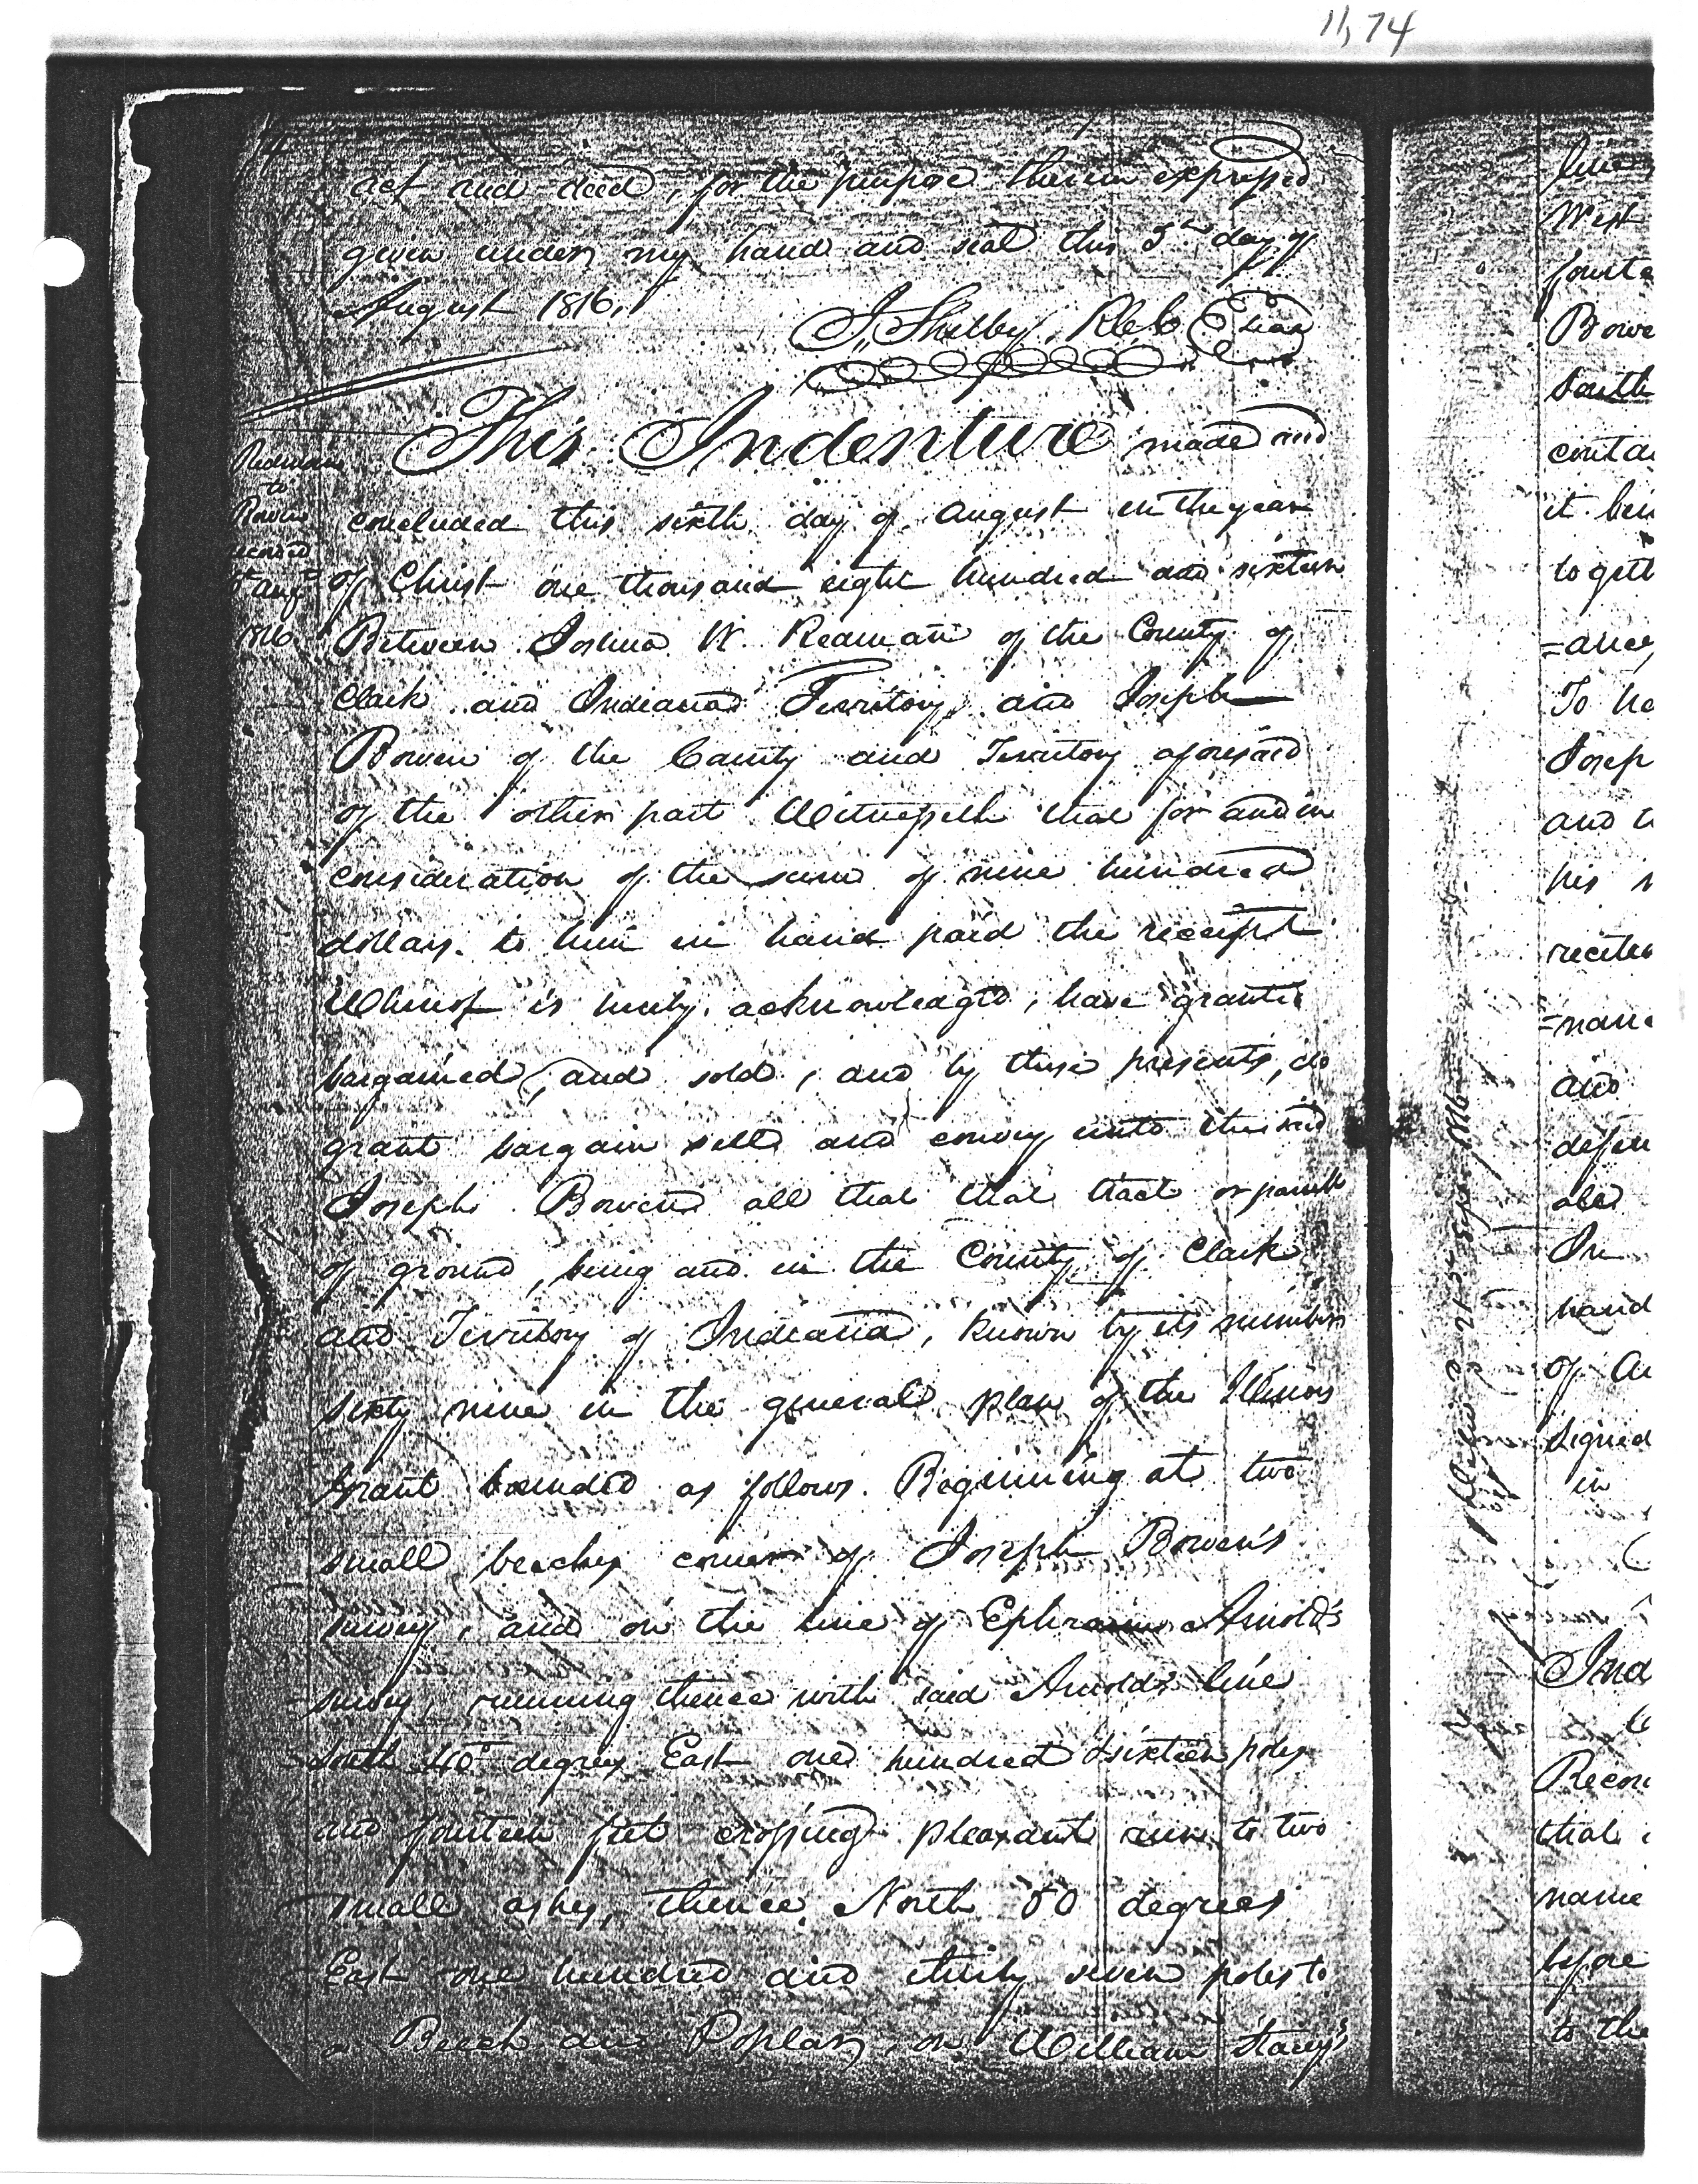 11,74
act and deed, for the purpose therein expressed
given under my hand and seal this 5th day of
August 1816.
J. Shelby, R C C
This Indenture made and
concluded this sixth day of August in the year
of Christ one thousand eight hundred and sixteen
Between Joshua W. Redman of the County of
Clark and Indiana Territory and Joseph
Bowen of the County and Territory aforesaid
of the other part Witnesseth that for and in
consideration of the sum of nine hundred
dollars. to him in hand paid the receipt
Whereof is hereby acknowledged, have granted
bargained, and sold, and by these presents, do
grant bargain sell and convey unto the said
Joseph Bowen all that that tract or parcel
of ground, being and in the County of Clark
and Territory of Indiana, known by its number
sixty nine in the general plan of the Illinois
Grant bounded as follows. Beginning at two
small beeches corner of Joseph Bowen's
survey, and on the line of Ephraim Arnold's
survey, running thence with said Arnolds line
South 40 degrees East one hundred & sixteen poles
and fourteen feet crossing pleasant run to two
small ashes, thence North 50 degrees
East one hundred and thirty seven poles to
a Beech and Poplar, on William Stacy's
Redman
to
Bowen
Augt
1816
West
Bowe
South
conta
it bein
to geth
=ance,
To ha
Josep
and
his
recited
=nan
and
defen
hand
of Au
Signed
in
Ind
Recor
that
name
before
to the